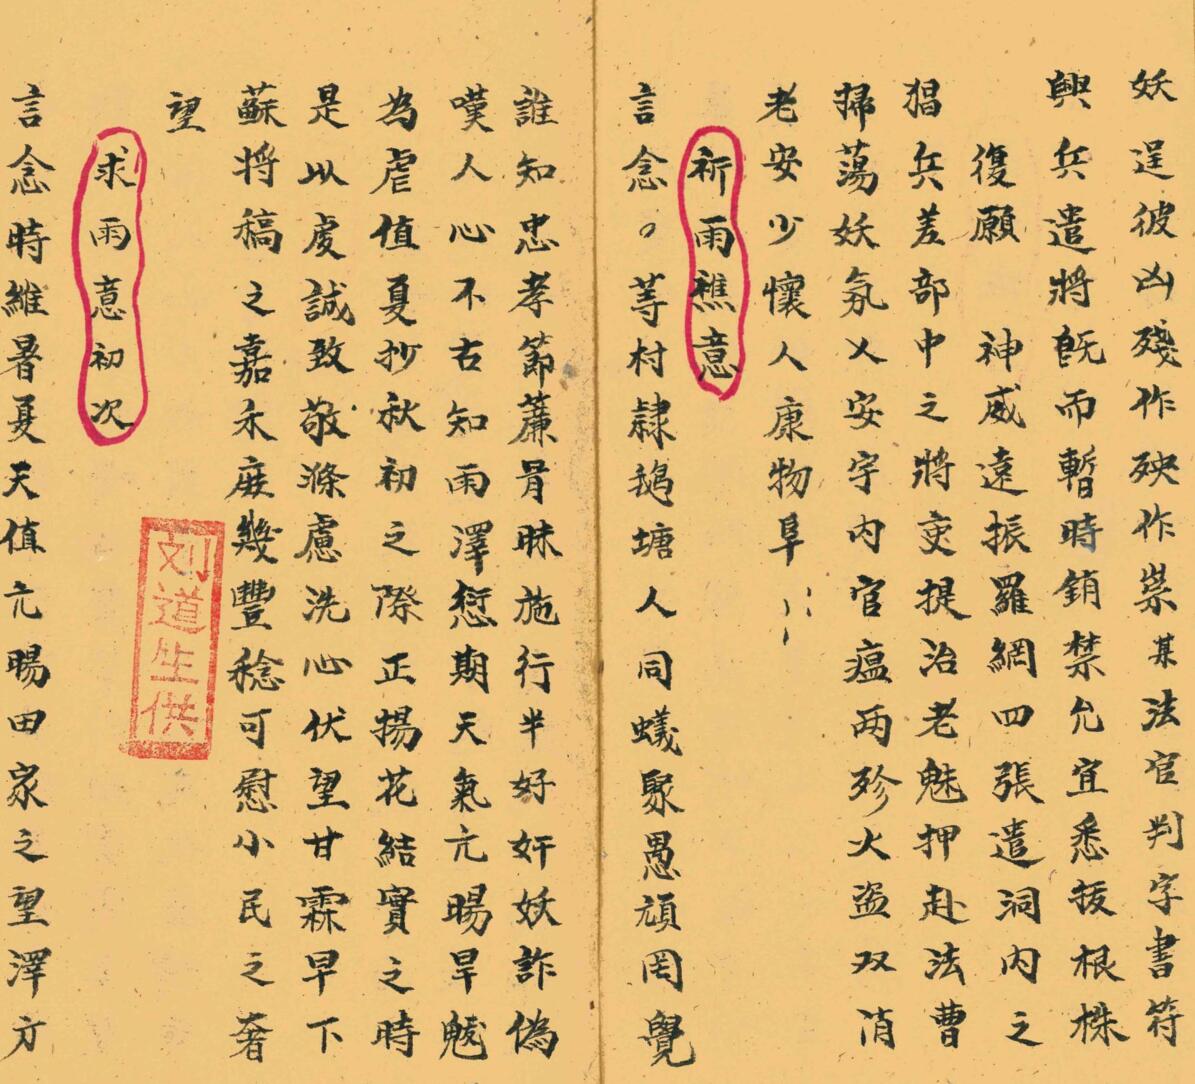 妖逞彼凶殘作殃作祟某法官判字書符
興兵遣將既而暫時銷禁允宜悉拔根株
復願　神威遠振羅網四張遣洞内之
猖兵差部中之將吏提治老魅押赴法曹
掃蕩妖氛乂安宇内官瘟两殄火盗双消
老安少懷人康物阜
祈雨醮意
言念。等村隷鵝塘人同蟻聚愚頑罔覺
誰知忠孝節廉骨昧施行半好奸妖詐偽
嘆人心不古知雨澤愆期天氣亢暘旱魃
為虐值夏抄秋初之際正揚花結實之時
是以虔誠致敬滌慮洗心伏望甘霖早下
蘇将稿之嘉禾庶幾豐稔可慰小民之奢
望
求雨意初次
刘道生供
言念時維暑夏天值亢暘田家之望澤方